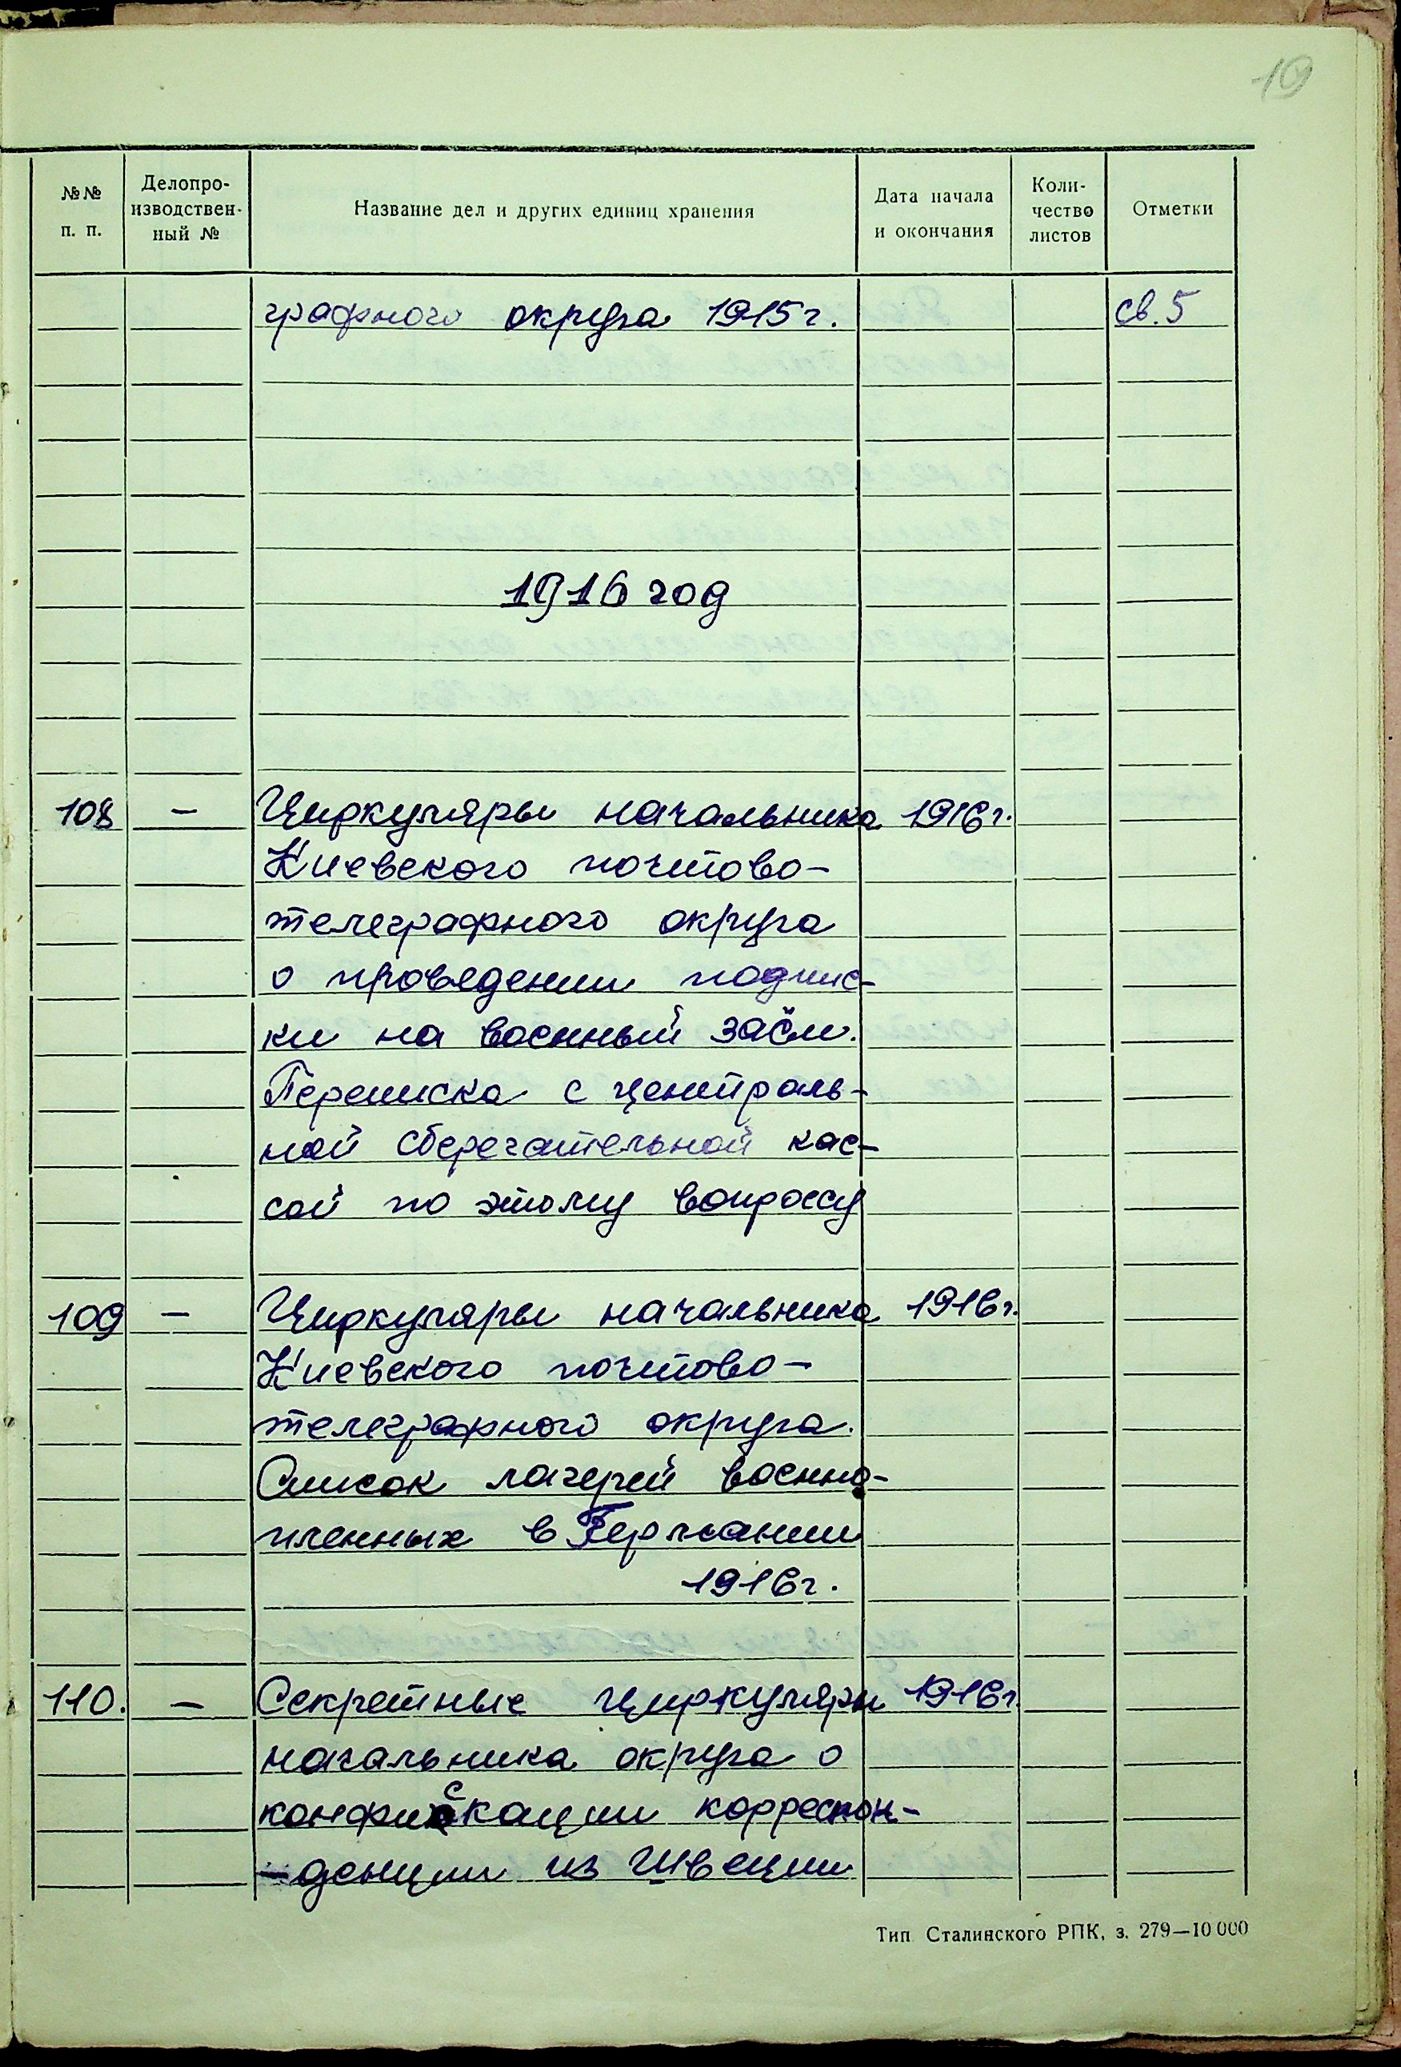 19
№№ п. п.
Делопро-
изводствен-
ный №
Название дел и других единиц хранения
Дата начала
и окончания
Коли-
чество
листов
Отметки
графного округа 1915г. св. 5
1916 год
108 — Циркуляры начальника 1916г.
Киевского почтово-
телеграфного округа
о проведении подпис-
ки на военный заём.
Переписка с централь-
ной сберегательной кас-
сой по этому вопросу
109 — Циркуляры начальника 1916г.
Киевского почтово-
телеграфного округа.
Список лагерей военно-
пленных в Германии
1916г.
110. — Секретные циркуляры 1916г.
начальника округа о
конфискации корреспон-
-денции из Швеции
Тип. Сталинского РПК, з. 279—10 000